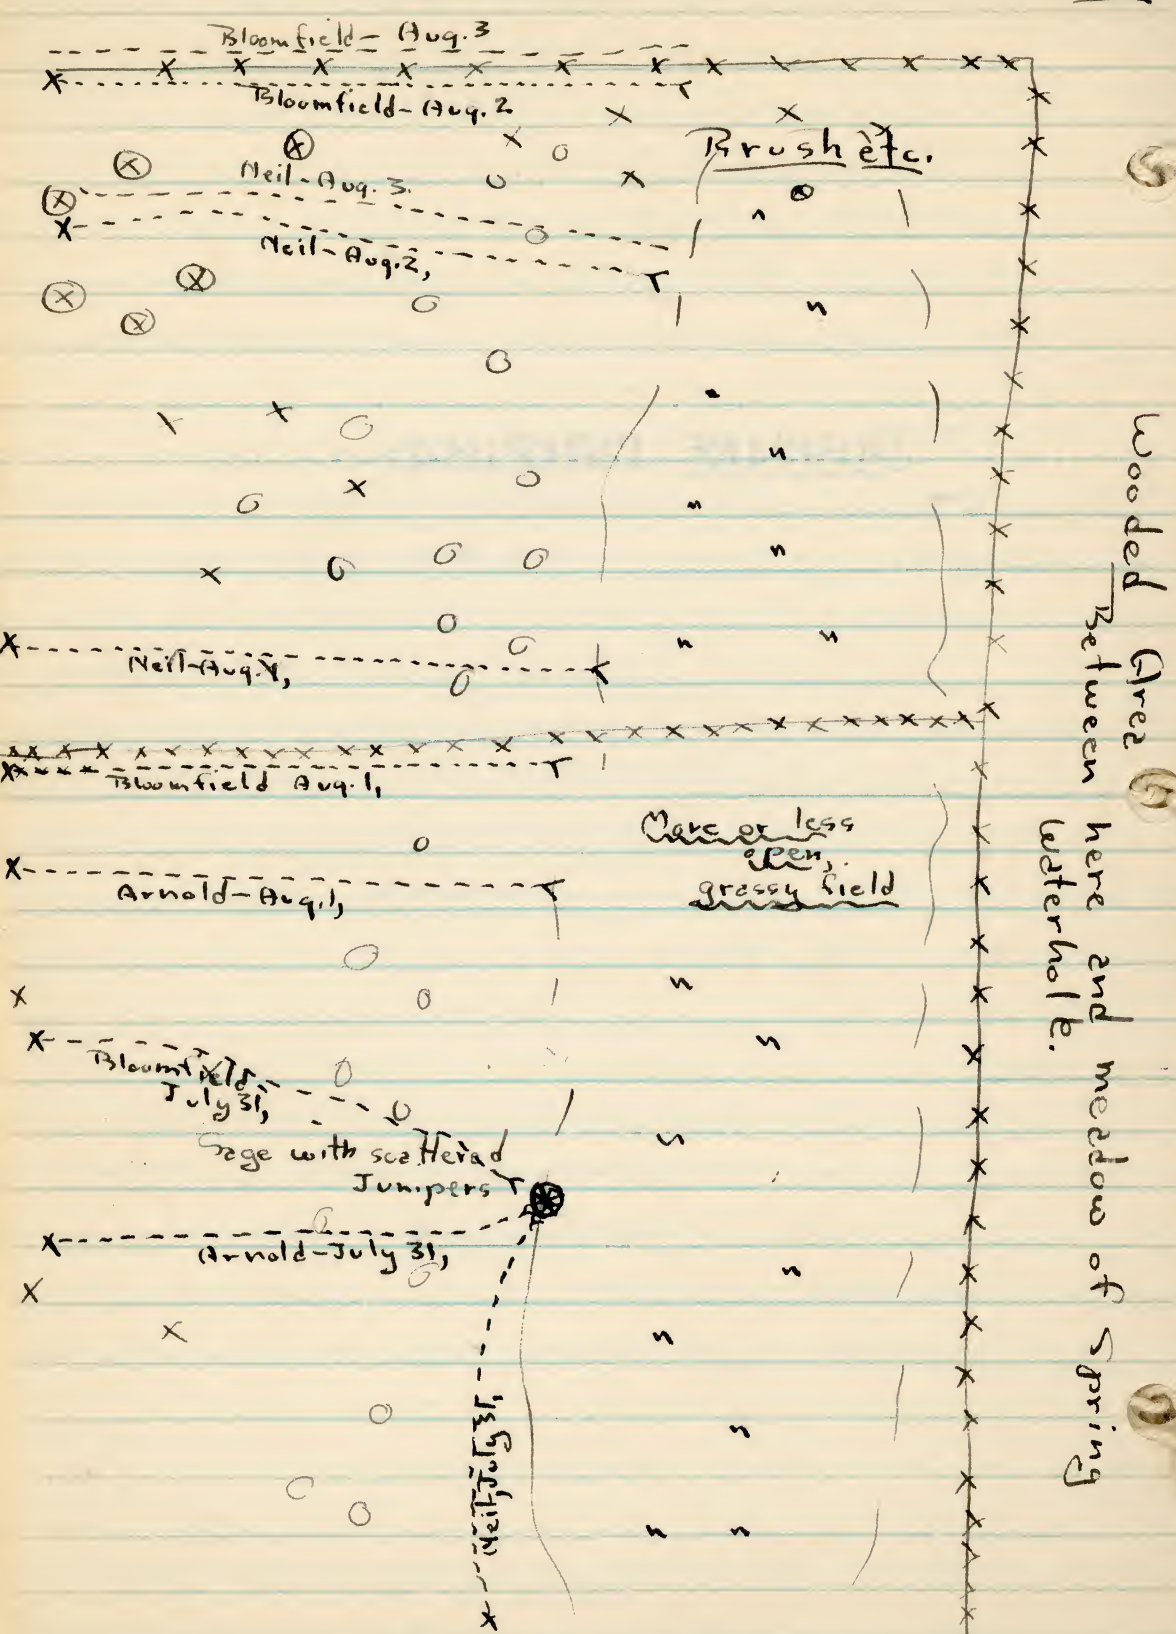 Bloomfield - Aug. 3
Bloomfield - Aug. 2
Brush etc.
Neil - Aug. 3.
Neil - Aug. 2,
Neil - Aug. 1,
Bloomfield Aug. 1,
More or less
open,
grassy field
Arnold - Aug. 1,
Bloomfield
July 31,
Sage with scattered
Junipers
Arnold - July 31,
Neil, July 31,
Wooded Area
Between here and meadow of Spring
Waterhole.